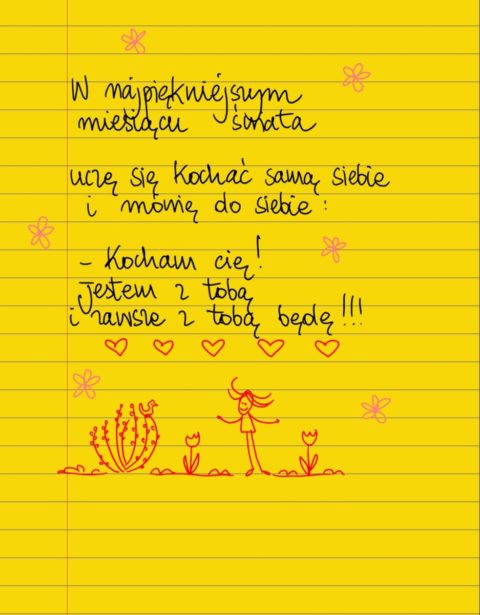 W najpiękniejszym
miesiącu świata
uczę się kochać samą siebie
i mówię do siebie:
- Kocham cię!
Jestem z tobą
i zawsze z tobą będę!!!